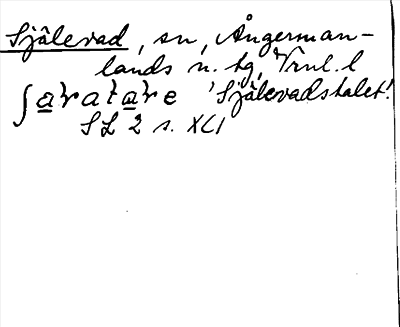 Själevad, sn, Ångerman-
lands n. tg, Vrnl. l
ʃaratare 'Själevadstalet'.
SL 2 s. XLI